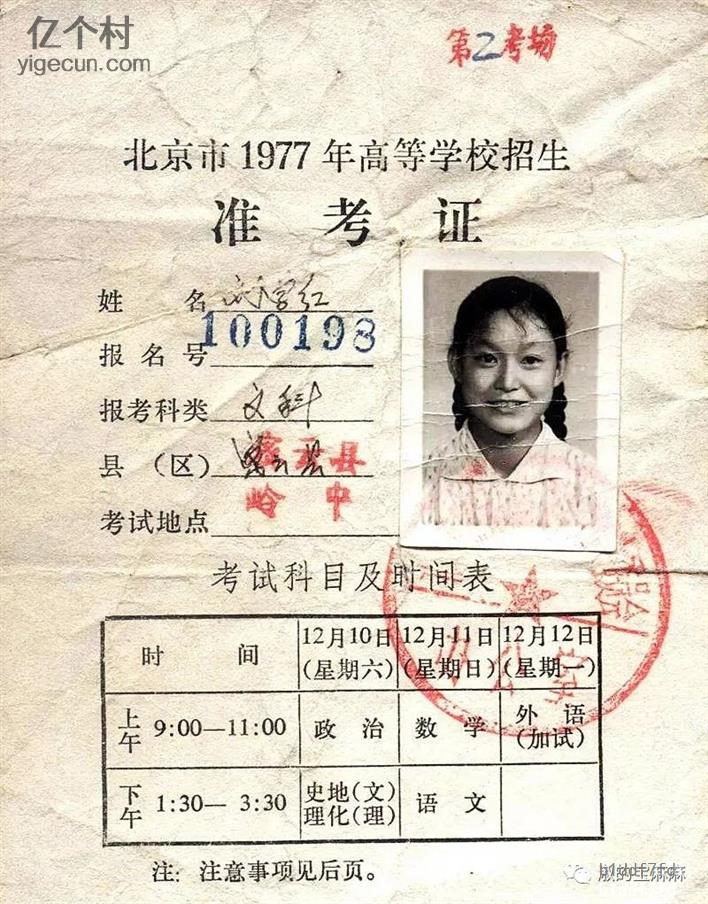 亿个村
yigecun.com
第2考场
北京市1977年高等学校招生
准考证
姓名 刘学红
报名号 100198
报考科类 文科
县(区) 密云县
岭中
考试地点
考试科目及时间表
时间 12月10日(星期六) 12月11日(星期日) 12月12日(星期一)
上午 9:00—11:00 政治 数学 外语(加试)
下午 1:30—3:30 史地(文)理化(理) 语文
注:注意事项见后页。